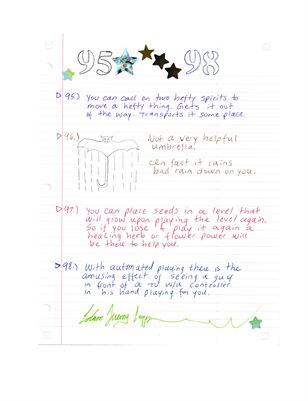 95 98
95.) You can call on two hefty spirits to
move a hefty thing. Gets it out
of the way. Transports it some place.
96.) Not a very helpful
umbrella.
In fact it rains
bad rain down on you.
97.) You can place seeds in a level that
will grow upon playing the level again.
So if you lose & play it again a
healing herb or flower power will
be there to help you.
98.) With automated playing there is the
amusing effect of seeing a guy
in front of a TV w/a controller
in his hand playing for you.